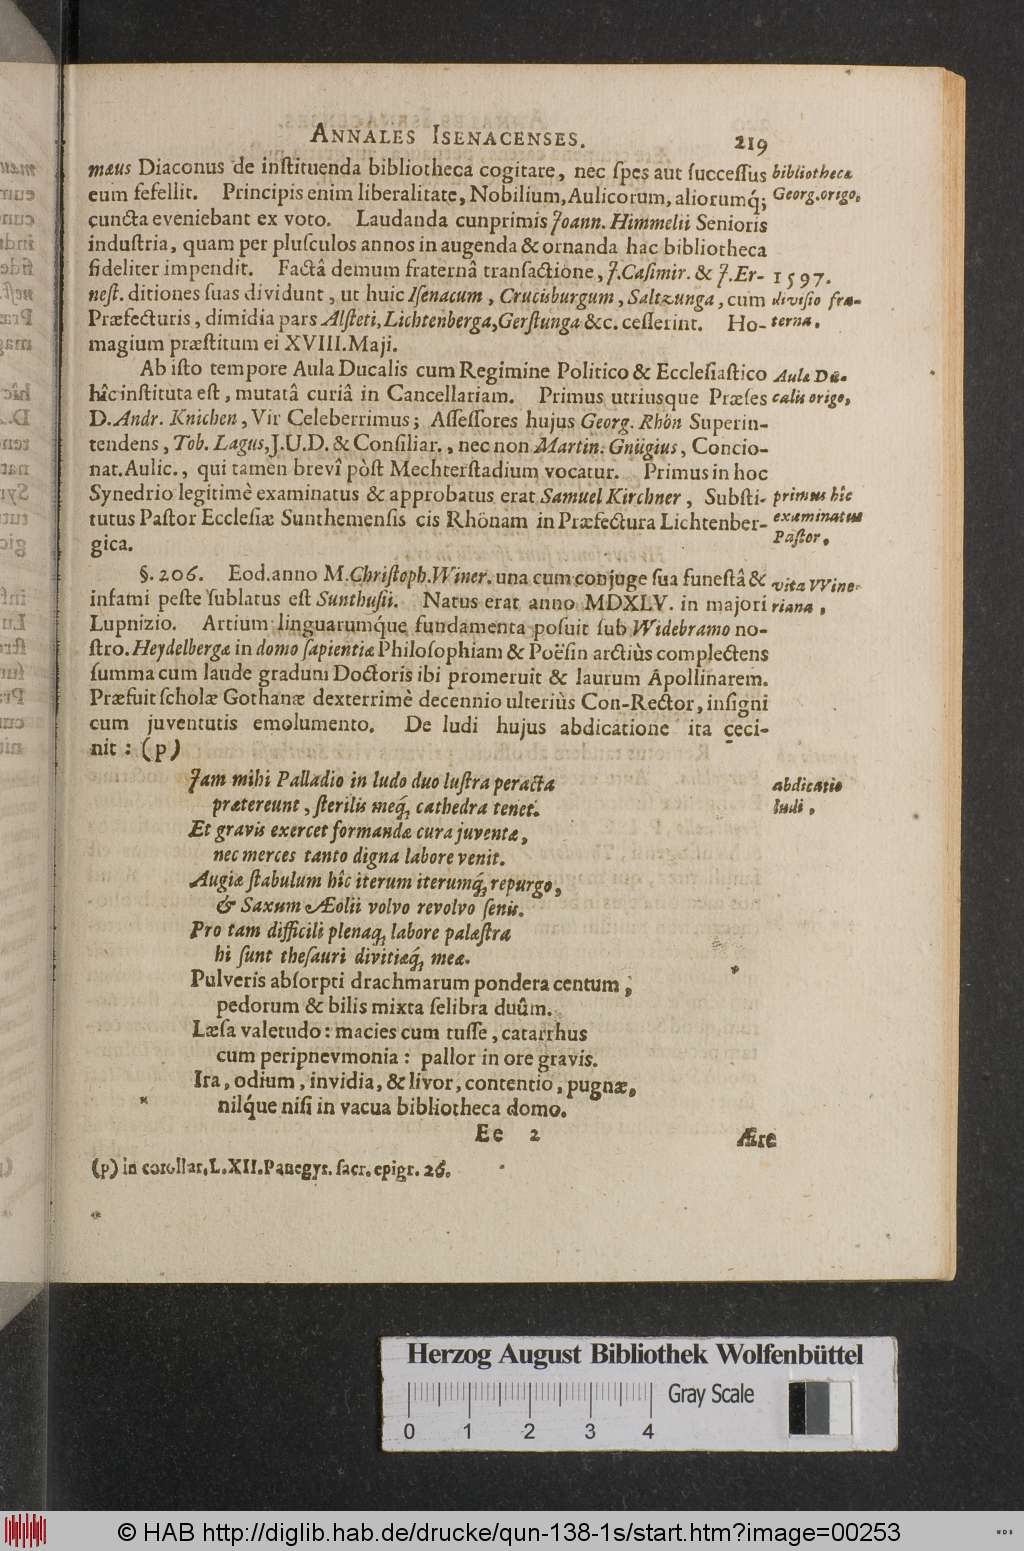 ANNALES ISENACENSES. 219
mæus Diaconus de inſtituenda bibliotheca cogitare, nec ſpes aut ſucceſſus
bibliothecæ
eum fefellit. Principis enim liberalitate, Nobilium, Aulicorum, aliorumq́;
Georg. origo,
cuncta eveniebant ex voto. Laudanda cunprimis Joann. Himmelii Senioris
induſtria, quam per pluſculos annos in augenda & ornanda hac bibliotheca
fideliter impendit. Factâ demum fraternâ tranſactione, J. Caſimir. & J. Er-
1597.
neſt. ditiones ſuas dividunt, ut huic Iſenacum, Crucisburgum, Saltzunga, cum
diviſio fra-
Præfecturis, dimidia pars Alſteti, Lichtenberga, Gerſtunga &c. ceſſerint. Ho-
terna.
magium præſtitum ei XVIII. Maji.
Ab iſto tempore Aula Ducalis cum Regimine Politico & Eccleſiaſtico
Aula Du-
hîc inſtituta eſt, mutatâ curiâ in Cancellariam. Primus utriusque Præſes
calis origo,
D. Andr. Knichen, Vir Celeberrimus; Aſſeſſores hujus Georg. Rhön Superin-
tendens, Tob. Lagus, J.U.D. & Conſiliar., nec non Martin. Gnügius, Concio-
nat. Aulic., qui tamen brevî pòſt Mechterſtadium vocatur. Primus in hoc
Synedrio legitimè examinatus & approbatus erat Samuel Kirchner, Subſti-
primus hîc
tutus Paſtor Eccleſiæ Sunthemenſis cis Rhönam in Præfectura Lichtenber-
examinatus
gica.
Paſtor.
§. 206. Eod. anno M. Chriſtoph. Winer. una cum conjuge ſua funeſtâ &
vita Wine-
infami peſte ſublatus eſt Sunthuſii. Natus erat anno MDXLV. in majori
riana,
Lupnizio. Artium linguarumq́ue fundamenta poſuit ſub Widebramo no-
ſtro. Heydelbergæ in domo ſapientiæ Philoſophiam & Poëſin arctiùs complectens
ſumma cum laude gradum Doctoris ibi promeruit & laurum Apollinarem.
Præfuit ſcholæ Gothanæ dexterrimè decennio ulteriùs Con-Rector, inſigni
cum juventutis emolumento. De ludi hujus abdicatione ita ceci-
nit: (p)
Jam mihi Palladio in ludo duo luſtra peracta
abdicatio
prætereunt, ſterilis meq́; cathedra tenet.
ludi,
Et gravis exercet formandæ cura juventæ,
nec merces tanto digna labore venit.
Augiæ ſtabulum hîc iterum iterumq́; repurgo,
& Saxum Æolii volvo revolvo ſenis.
Pro tam difficili plenaq; labore palæſtra
hi ſunt theſauri divitiæq́; meæ.
Pulveris abſorpti drachmarum pondera centum;
pedorum & bilis mixta ſelibra duûm.
Læſa valetudo: macies cum tuſſe, catarrhus
cum peripnevmonia: pallor in ore gravis.
Ira, odium, invidia, & livor, contentio, pugnæ,
nilq́ue niſi in vacua bibliotheca domo.
Ee 2 Ære
(p) in corollar. L. XII. Panegyr. ſacr. epigr. 26.
Herzog August Bibliothek Wolfenbüttel
Gray Scale
0 1 2 3 4
© HAB http://diglib.hab.de/drucke/qun-138-1s/start.htm?image=00253